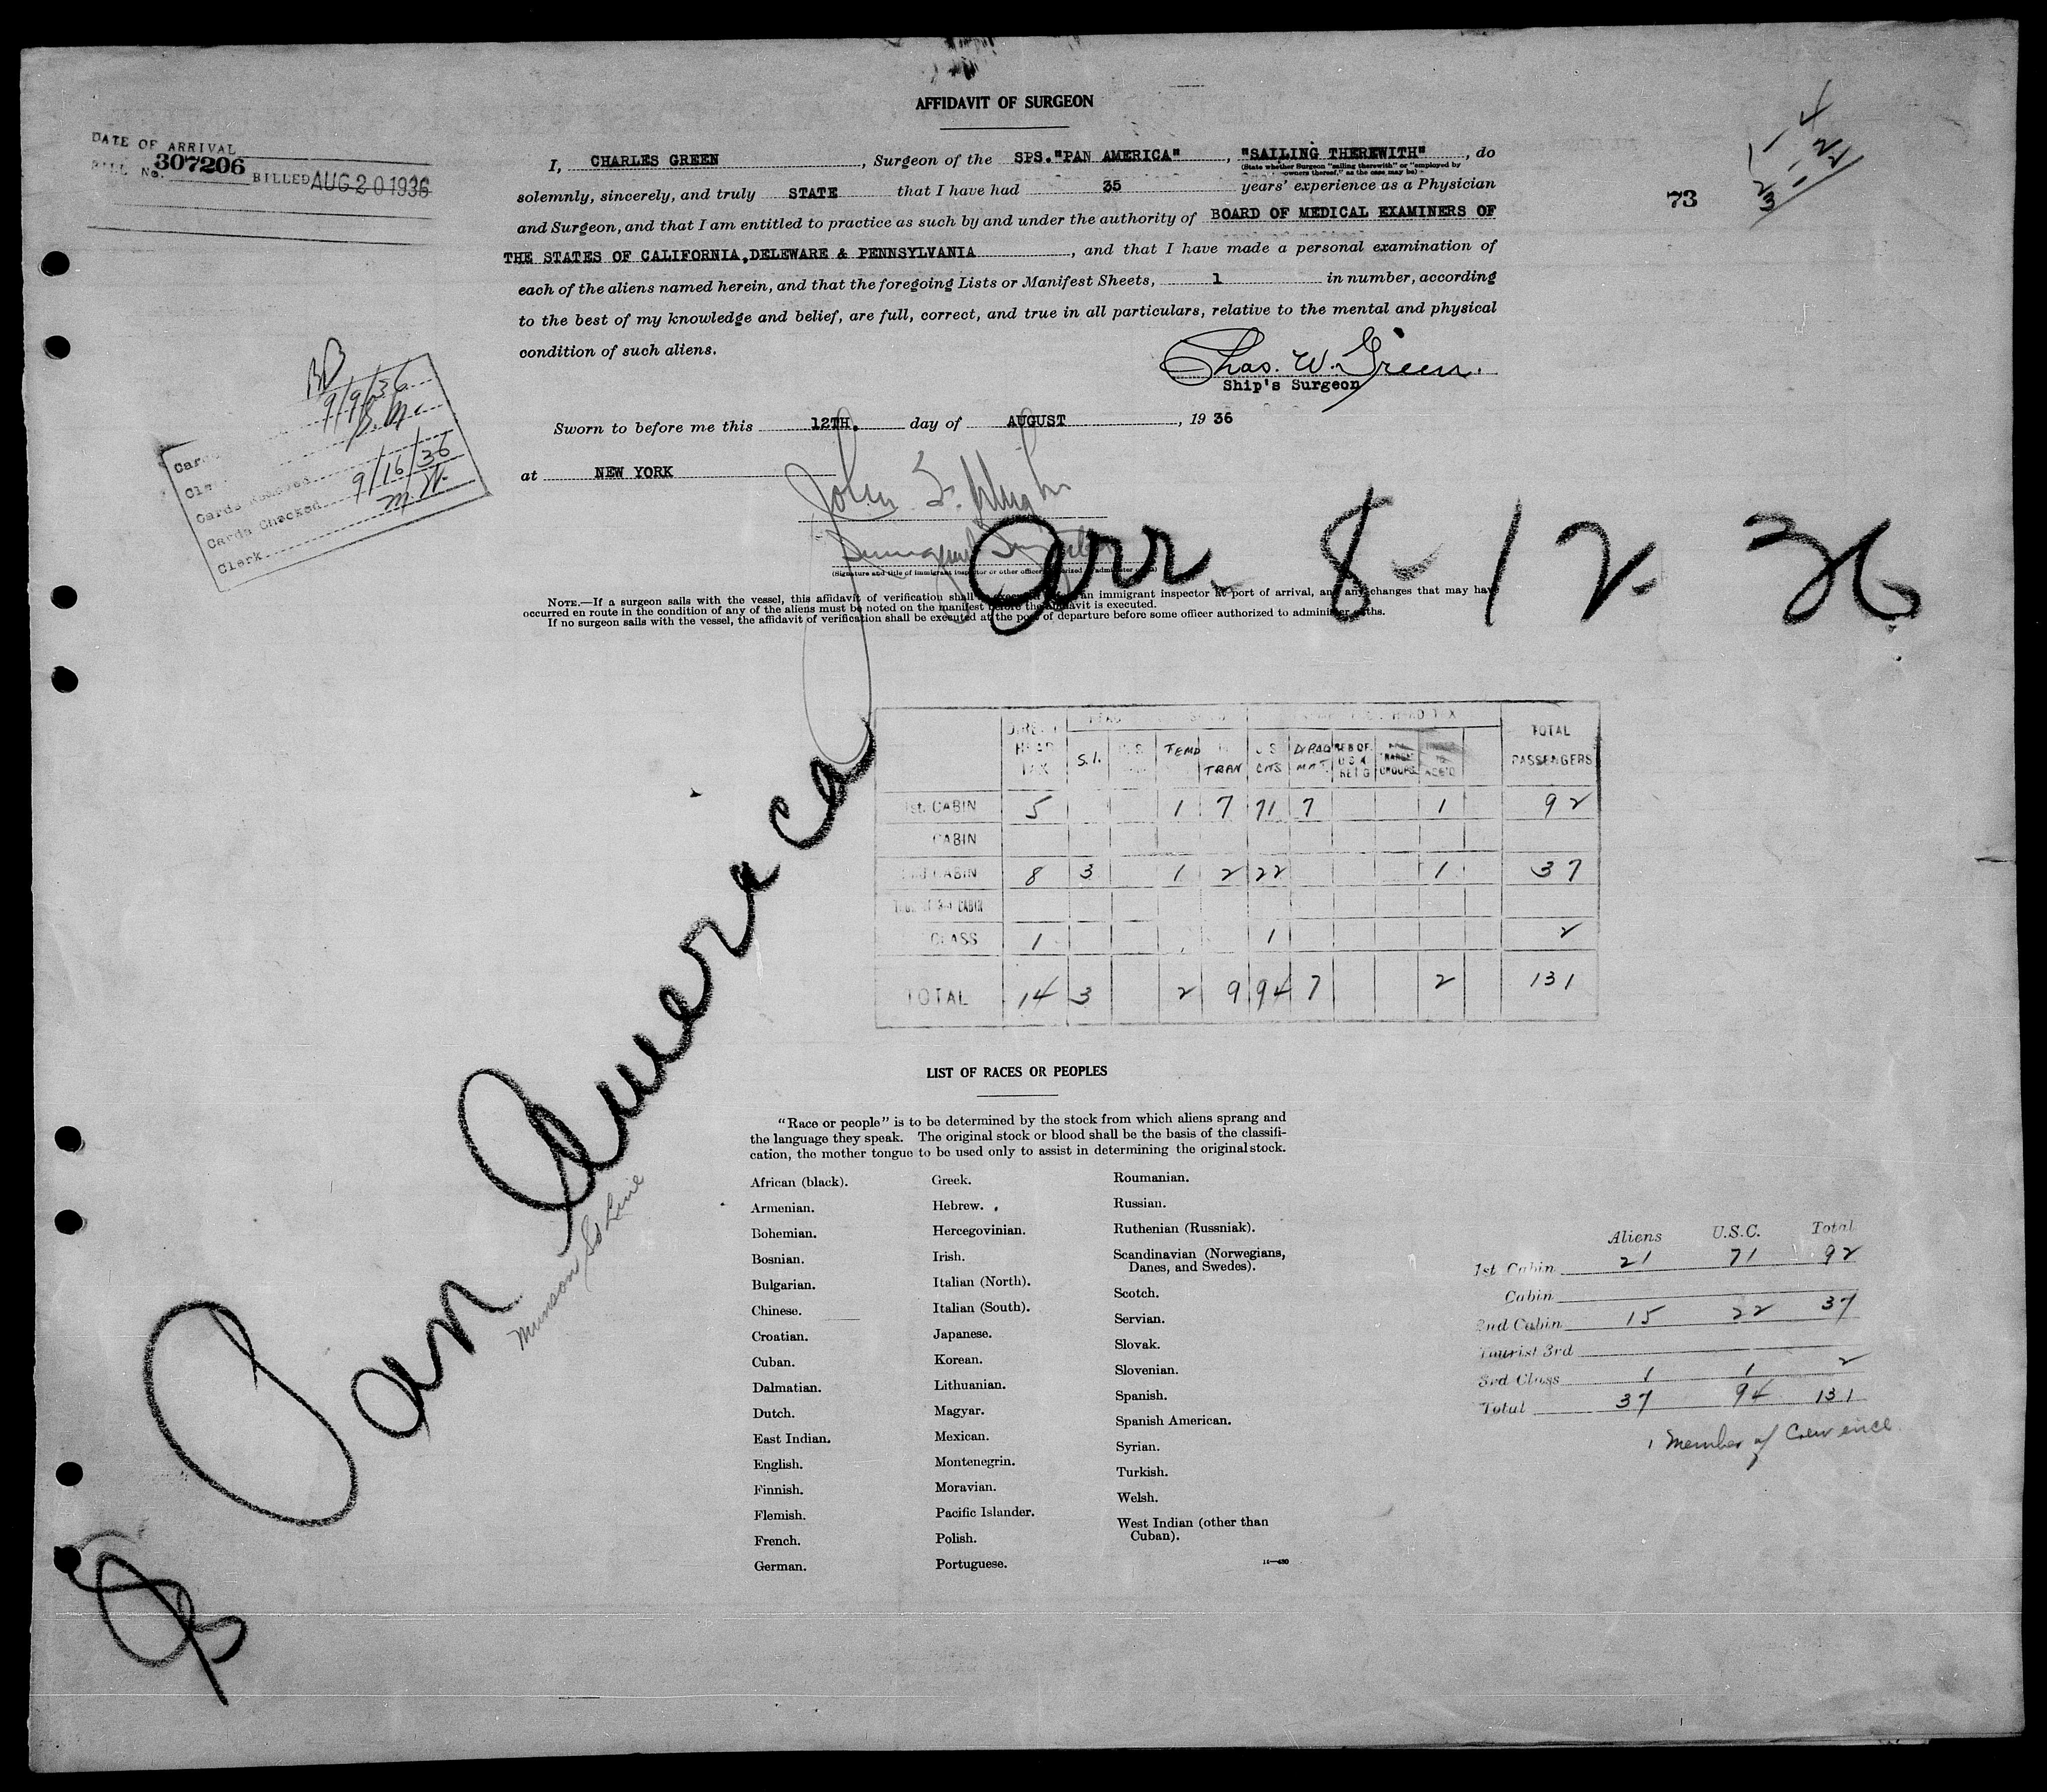 AFFIDAVIT OF SURGEON
DATE OF ARRIVAL
BILL No. 307206 BILLED AUG 20 1936
73
I, CHARLES GREEN, Surgeon of the SPS."PAN AMERICA", "SAILING THEREWITH", do
(State whether Surgeon "sailing therewith" or "employed by
owners thereof," as the case may be)
solemnly, sincerely, and truly STATE that I have had 35 years' experience as a Physician
and Surgeon, and that I am entitled to practice as such by and under the authority of BOARD OF MEDICAL EXAMINERS OF
THE STATES OF CALIFORNIA,DELEWARE & PENNSYLVANIA, and that I have made a personal examination of
each of the aliens named herein, and that the foregoing Lists or Manifest Sheets, 1 in number, according
to the best of my knowledge and belief, are full, correct, and true in all particulars, relative to the mental and physical
condition of such aliens.
Chas. W. Green.
Ship's Surgeon
Sworn to before me this 12TH. day of AUGUST, 19 36
at NEW YORK
9/9/36
Cards Checked 9/16/36
Clerk
Arr. 8-12-36
(Signature and title of immigrant inspector or other officer authorized to administer
NOTE.—If a surgeon sails with the vessel, this affidavit of verification shall an immigrant inspector at port of arrival, and any changes that may have
occurred en route in the condition of any of the aliens must be noted on the manifest before the affidavit is executed.
If no surgeon sails with the vessel, the affidavit of verification shall be executed at the port of departure before some officer authorized to administer oaths.
DIRECT HEAD TAX S.I. TEMP TRAN U S CITS DIPLO MAT. TOTAL PASSENGERS
1st. CABIN 5 1 7 71 7 1 92
CABIN
2nd CABIN 8 3 1 2 22 1 37
CLASS 1 1 2
TOTAL 14 3 2 9 94 7 2 131
Pan America
Munson SS Line
LIST OF RACES OR PEOPLES
"Race or people" is to be determined by the stock from which aliens sprang and
the language they speak. The original stock or blood shall be the basis of the classifi-
cation, the mother tongue to be used only to assist in determining the original stock.
African (black).
Armenian.
Bohemian.
Bosnian.
Bulgarian.
Chinese.
Croatian.
Cuban.
Dalmatian.
Dutch.
East Indian.
English.
Finnish.
Flemish.
French.
German.
Greek.
Hebrew.
Hercegovinian.
Irish.
Italian (North).
Italian (South).
Japanese.
Korean.
Lithuanian.
Magyar.
Mexican.
Montenegrin.
Moravian.
Pacific Islander.
Polish.
Portuguese.
Roumanian.
Russian.
Ruthenian (Russniak).
Scandinavian (Norwegians,
Danes, and Swedes).
Scotch.
Servian.
Slovak.
Slovenian.
Spanish.
Spanish American.
Syrian.
Turkish.
Welsh.
West Indian (other than
Cuban).
Aliens U.S.C. Total
1st Cabin 21 71 92
Cabin
2nd Cabin 15 22 37
Tourist 3rd
3rd Class 1 1 2
Total 37 94 131
1 Member of Crew